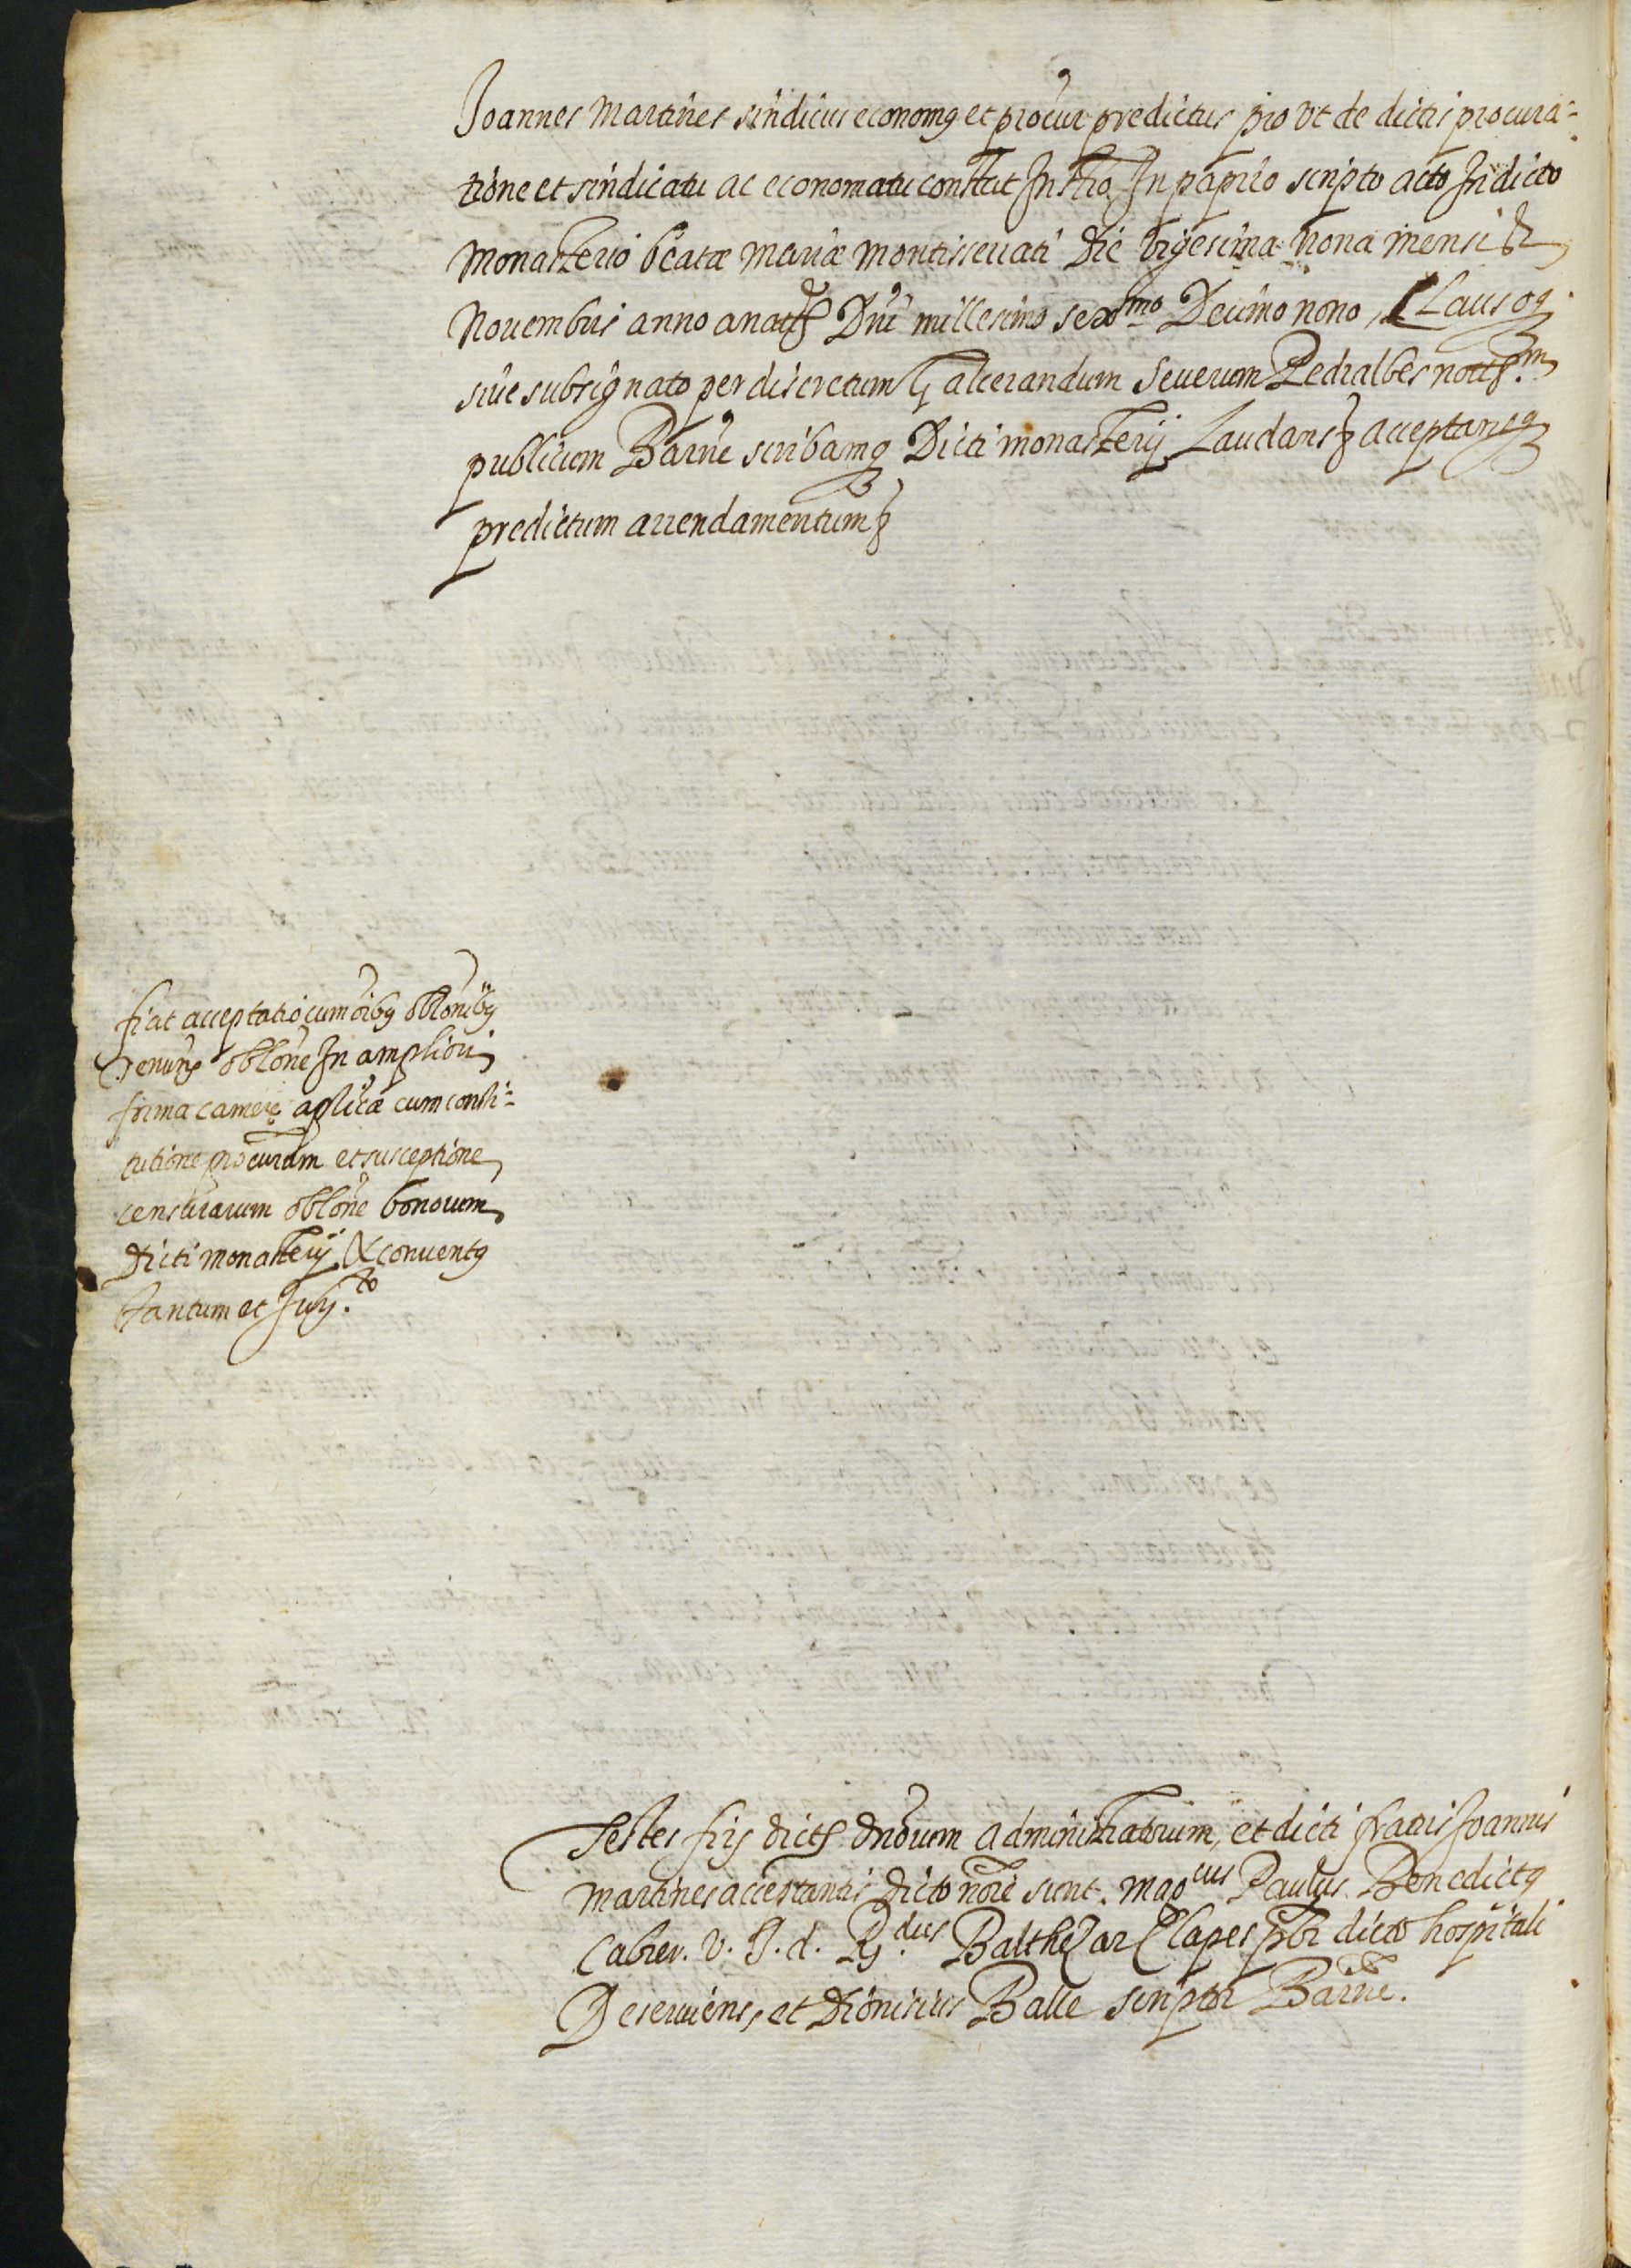 Joannes Martines sindicus economq et procur predictus pro vt de dictis procura-
tione et sindicatu ac economatu constat Instro In papiro scripto acto In dicto
monasterio beatæ mariæ montisserrati die vigesima nona mensis
Nouembris anno a nate Dni millesimo sexmo Decimo nono, Clausoq
siue subsignato per discretum Galcerandum Seuerum Pedralbes notm
publicum Barne scribamq dicti monasterij Laudans acceptansq
predictum arrendamentum
fiat acceptatio cum oibq oblonibq
oblone In ampliori
forma camere aplicæ cum consti-
tutione procurum et susceptione
censurarum oblone bonorum
dicti monasterij & conuentq
tantum et Jurto
Testes firs dicts dnorum administratorum, et dicti fratris Joannis
martines acceptantis dicto noie sunt. magcus Paulus Benedictq
Cabrer. V. J. d. Rdus Balthezar Clapes pbr dicto hospitali
Deseruiens, et dionisius Balle scriptor Barne.